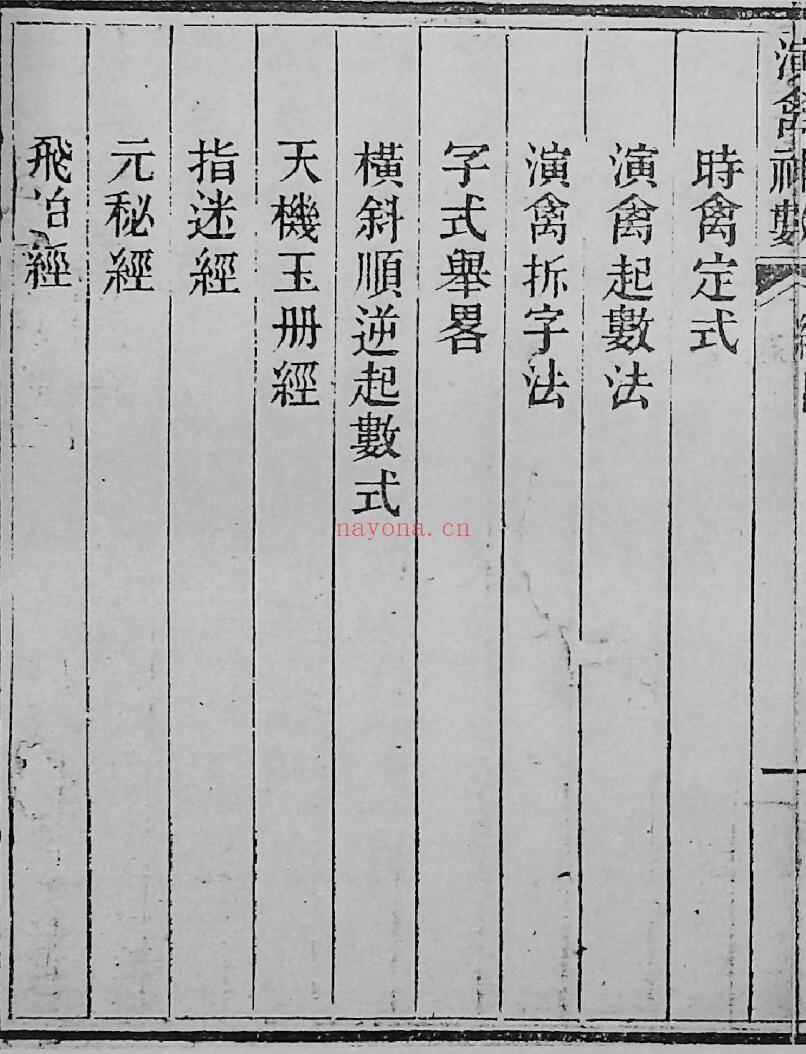 演禽神數
時禽定式
演禽起數法
演禽拆字法
字式舉畧
橫斜順逆起數式
天機玉册經
指迷經
元秘經
飛冶經
nayona.cn